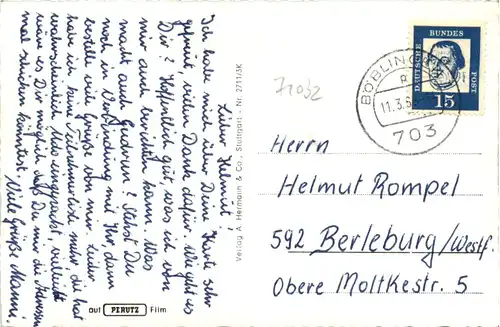 Lieber Helmut!
Ich habe mich über Deine Karte sehr
gefreut. Vielen Dank dafür. Wie geht es
Dir? Hoffentlich gut, was ich von
mir auch berichten kann. Was
macht auch Gudrun? Stehst Du
noch in Verbindung mit ihr dann
bestelle viele Grüße von mir. Leider
habe ich keine Teilnehmerliste mehr die hat
wahrscheinlich Utas eingepackt, vielleicht
wäre es Dir möglich daß Du mir die
mal schicken könntest. Viele Grüße Manni.
Verlag A. Hermann & Co., Stuttgart - Nr. 2711/SK
auf PERUTZ Film
71032
DEUTSCHE BUNDESPOST
15
BÖBLINGEN
11.3.6
703
Herrn
Helmut Rompel
592 Berleburg/Westf.
Obere Moltkestr. 5